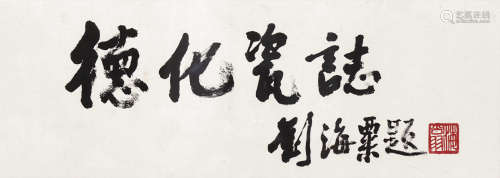 德化瓷誌
劉海粟題